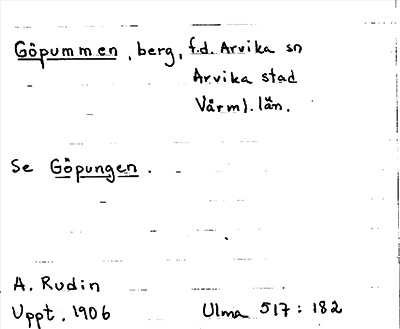 Göpummen, berg, f.d. Arvika sn
Arvika stad
Värml. län.
Se Göpungen.
A. Rudin
Uppt. 1906 Ulma 517: 182